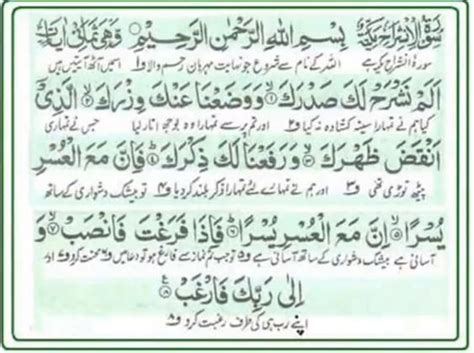 سُوْرَةُ الْاِنْشِرَاح مَكِّيَّةٌ بِسْمِ اللّٰهِ الرَّحْمٰنِ الرَّحِيْمِ وَّهِيَ ثَمَانِيْ اٰيَاتٍ
سورۂ انشراح مکی ہے اللہ کے نام سے شروع جو نہایت مہربان رحم والا ف۱ اسمیں آٹھ آیتیں ہیں
اَلَمْ نَشْرَحْ لَكَ صَدْرَكَ ۙ۱ وَوَضَعْنَا عَنْكَ وِزْرَكَ ۙ۲ الَّذِيْۤ
کیا ہم نے تمہارا سینہ کشادہ نہ کیا ف۲ اور تم پر سے تمہارا وہ بوجھ اتار لیا جس نے تمہاری
اَنْقَضَ ظَهْرَكَ ۙ۳ وَرَفَعْنَا لَكَ ذِكْرَكَ ؕ۴ فَاِنَّ مَعَ الْعُسْرِ
پیٹھ توڑی تھی ف۳ اور ہم نے تمہارے لئے تمہارا ذکر بلند کر دیا ف۴ تو بیشک دشواری کے ساتھ
يُسْرًا ۙ۵ اِنَّ مَعَ الْعُسْرِ يُسْرًا ؕ۶ فَاِذَا فَرَغْتَ فَانْصَبْ ۙ۷ وَ
آسانی ہے بیشک دشواری کے ساتھ آسانی ہے ف۵ تو جب تم نماز سے فارغ ہو تو دعا میں ف۶ محنت کرو ف۷ اور
اِلٰى رَبِّكَ فَارْغَبْ ۠۸
اپنے رب ہی کی طرف رغبت کرو ف۸